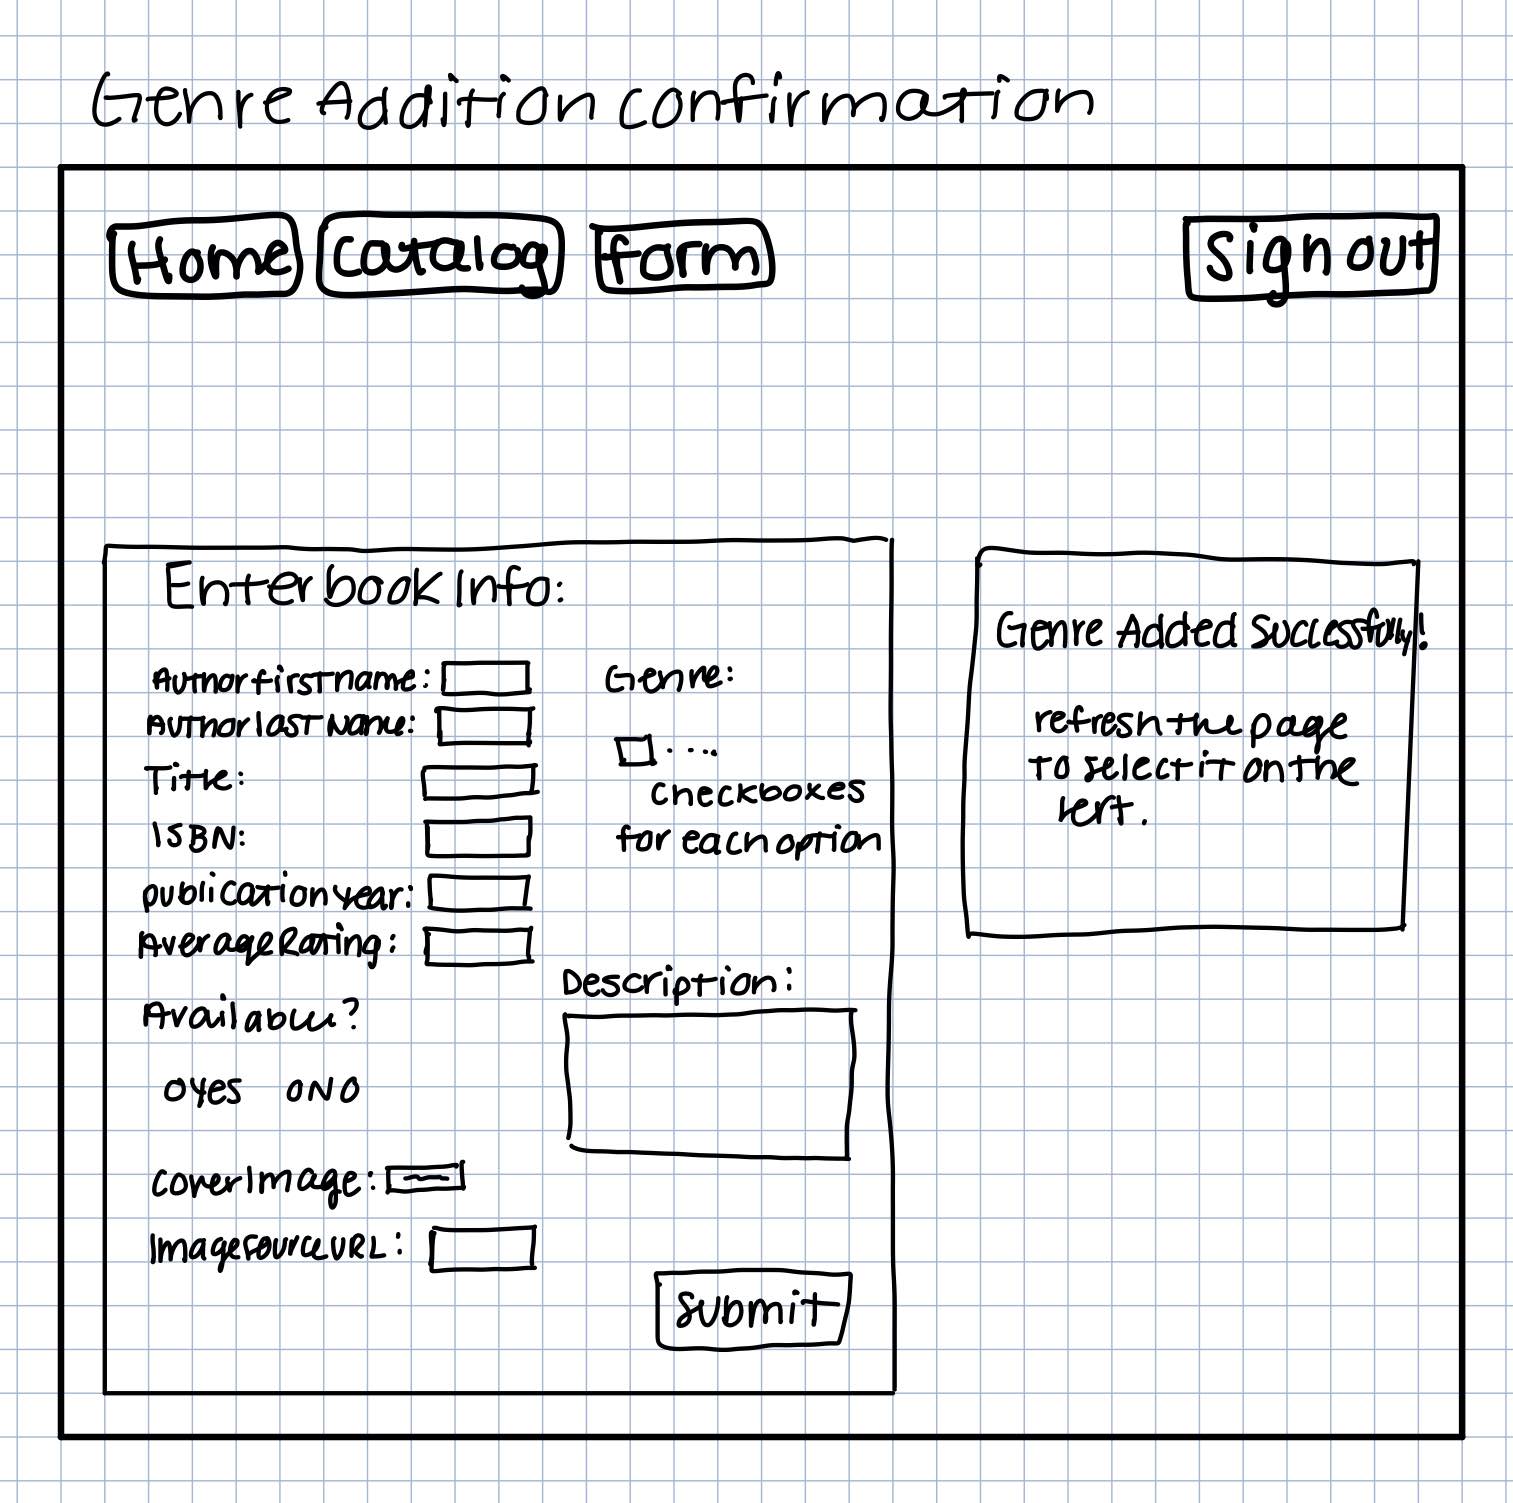 Genre Addition confirmation
Home catalog form Sign out
Enter book Info:
Author first name:
Author last Name:
Title:
ISBN:
publication year:
Average Rating:
Available?
yes NO
cover Image:
Image source URL:
Genre:
....
checkboxes
for each option
Description:
submit
Genre Added Successfully!
refresh the page
to select it on the
left.